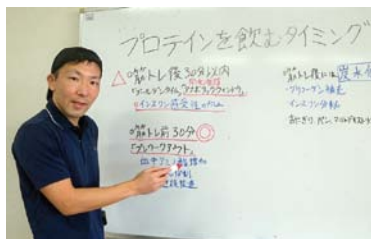 プロテインを飲むタイミング
△ ○筋トレ後30分以内
「ゴールデンタイム」「アナボリックウィンドウ」
○インスリン感受性
○筋トレ前30分 ◎
「プレワークアウト」
血中アミノ酸
○筋トレ後には
グリコーゲン補充
インスリン
おにぎり、パン、マルトデキストリン